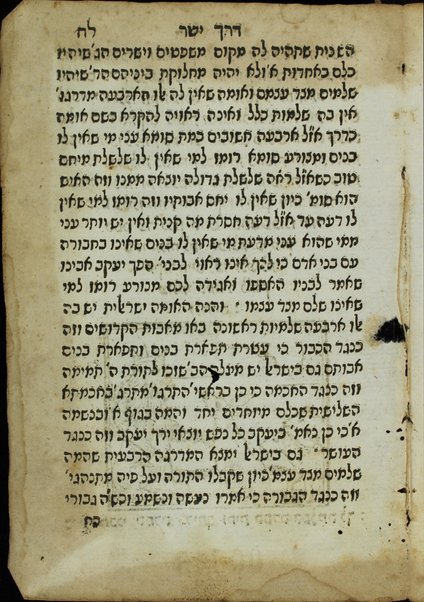 דרך ישר
לח
השנית שתהיה לה מקום משפטים וישרים הג׳ שיהיו
כלם באחדות א׳ ולא יהיה מחלוקת ביניהם הד׳ שיהיו
שלמים מצד עצמם ואומה שאין לה או הארבעה מדרגו׳
אין בה שלמות כלל ואינה ראויה להקרא בשם אומה
כדרך א״ל ארבעה חשובים כמת סומא עני מי שאין לו
בנים ומצורע סומא רומז למי שאין לו שלשלת מיחס
טוב כשא״ל ראה שלשלת גדולה יוצאה ממנו וזה האיש
הוא סומ׳ כיון שאין לו יחס אבותיו וזה רומז למי שאין
לו דעה עד א״ל דעה חסרת מה קנית ואין יש יותר עני
ממי שהוא עני מדעת מי שאין לו בנים שאינו בחבורה
עם בני אדם כי לכך אינו ראוי לבני׳ הפך יעקב אבינו
שאמר לבניו האספו ואגידה לכם מצורע רומז למי
שאינו שלם מצד עצמו ׳ והנה האומה ישראלית יש בה
או ארבעה שלמיות ראשונה באו מאבות הקדושים וזה
כנגד הכבוד כי עטרת תפארת בנים ותפארת בנים
אבותם גם בישראל יש מעלה הב׳ שזכו לתורת ה׳ תמימה
וזה כנגד החכמה כי כן בראשי׳ התרגו׳ מתרג׳ בחכמתא
השלישית שכלם מיוחדים יחד והמה בגוף א׳ ובנשמה
א׳ כי כן נאמ׳ ביעקב כל נפש יוצאי ירך יעקב וזה כנגד
העושר ׳ גם בישראל ימצא המדרגה הרבעית שהמה
שלמים מצד עצמם כיון שקבלו התורה ועל פיה מתנהגי׳
וזה כנגד הגבורה כי אמרו נעשה ונשמע וכשא׳ גבורי
כח